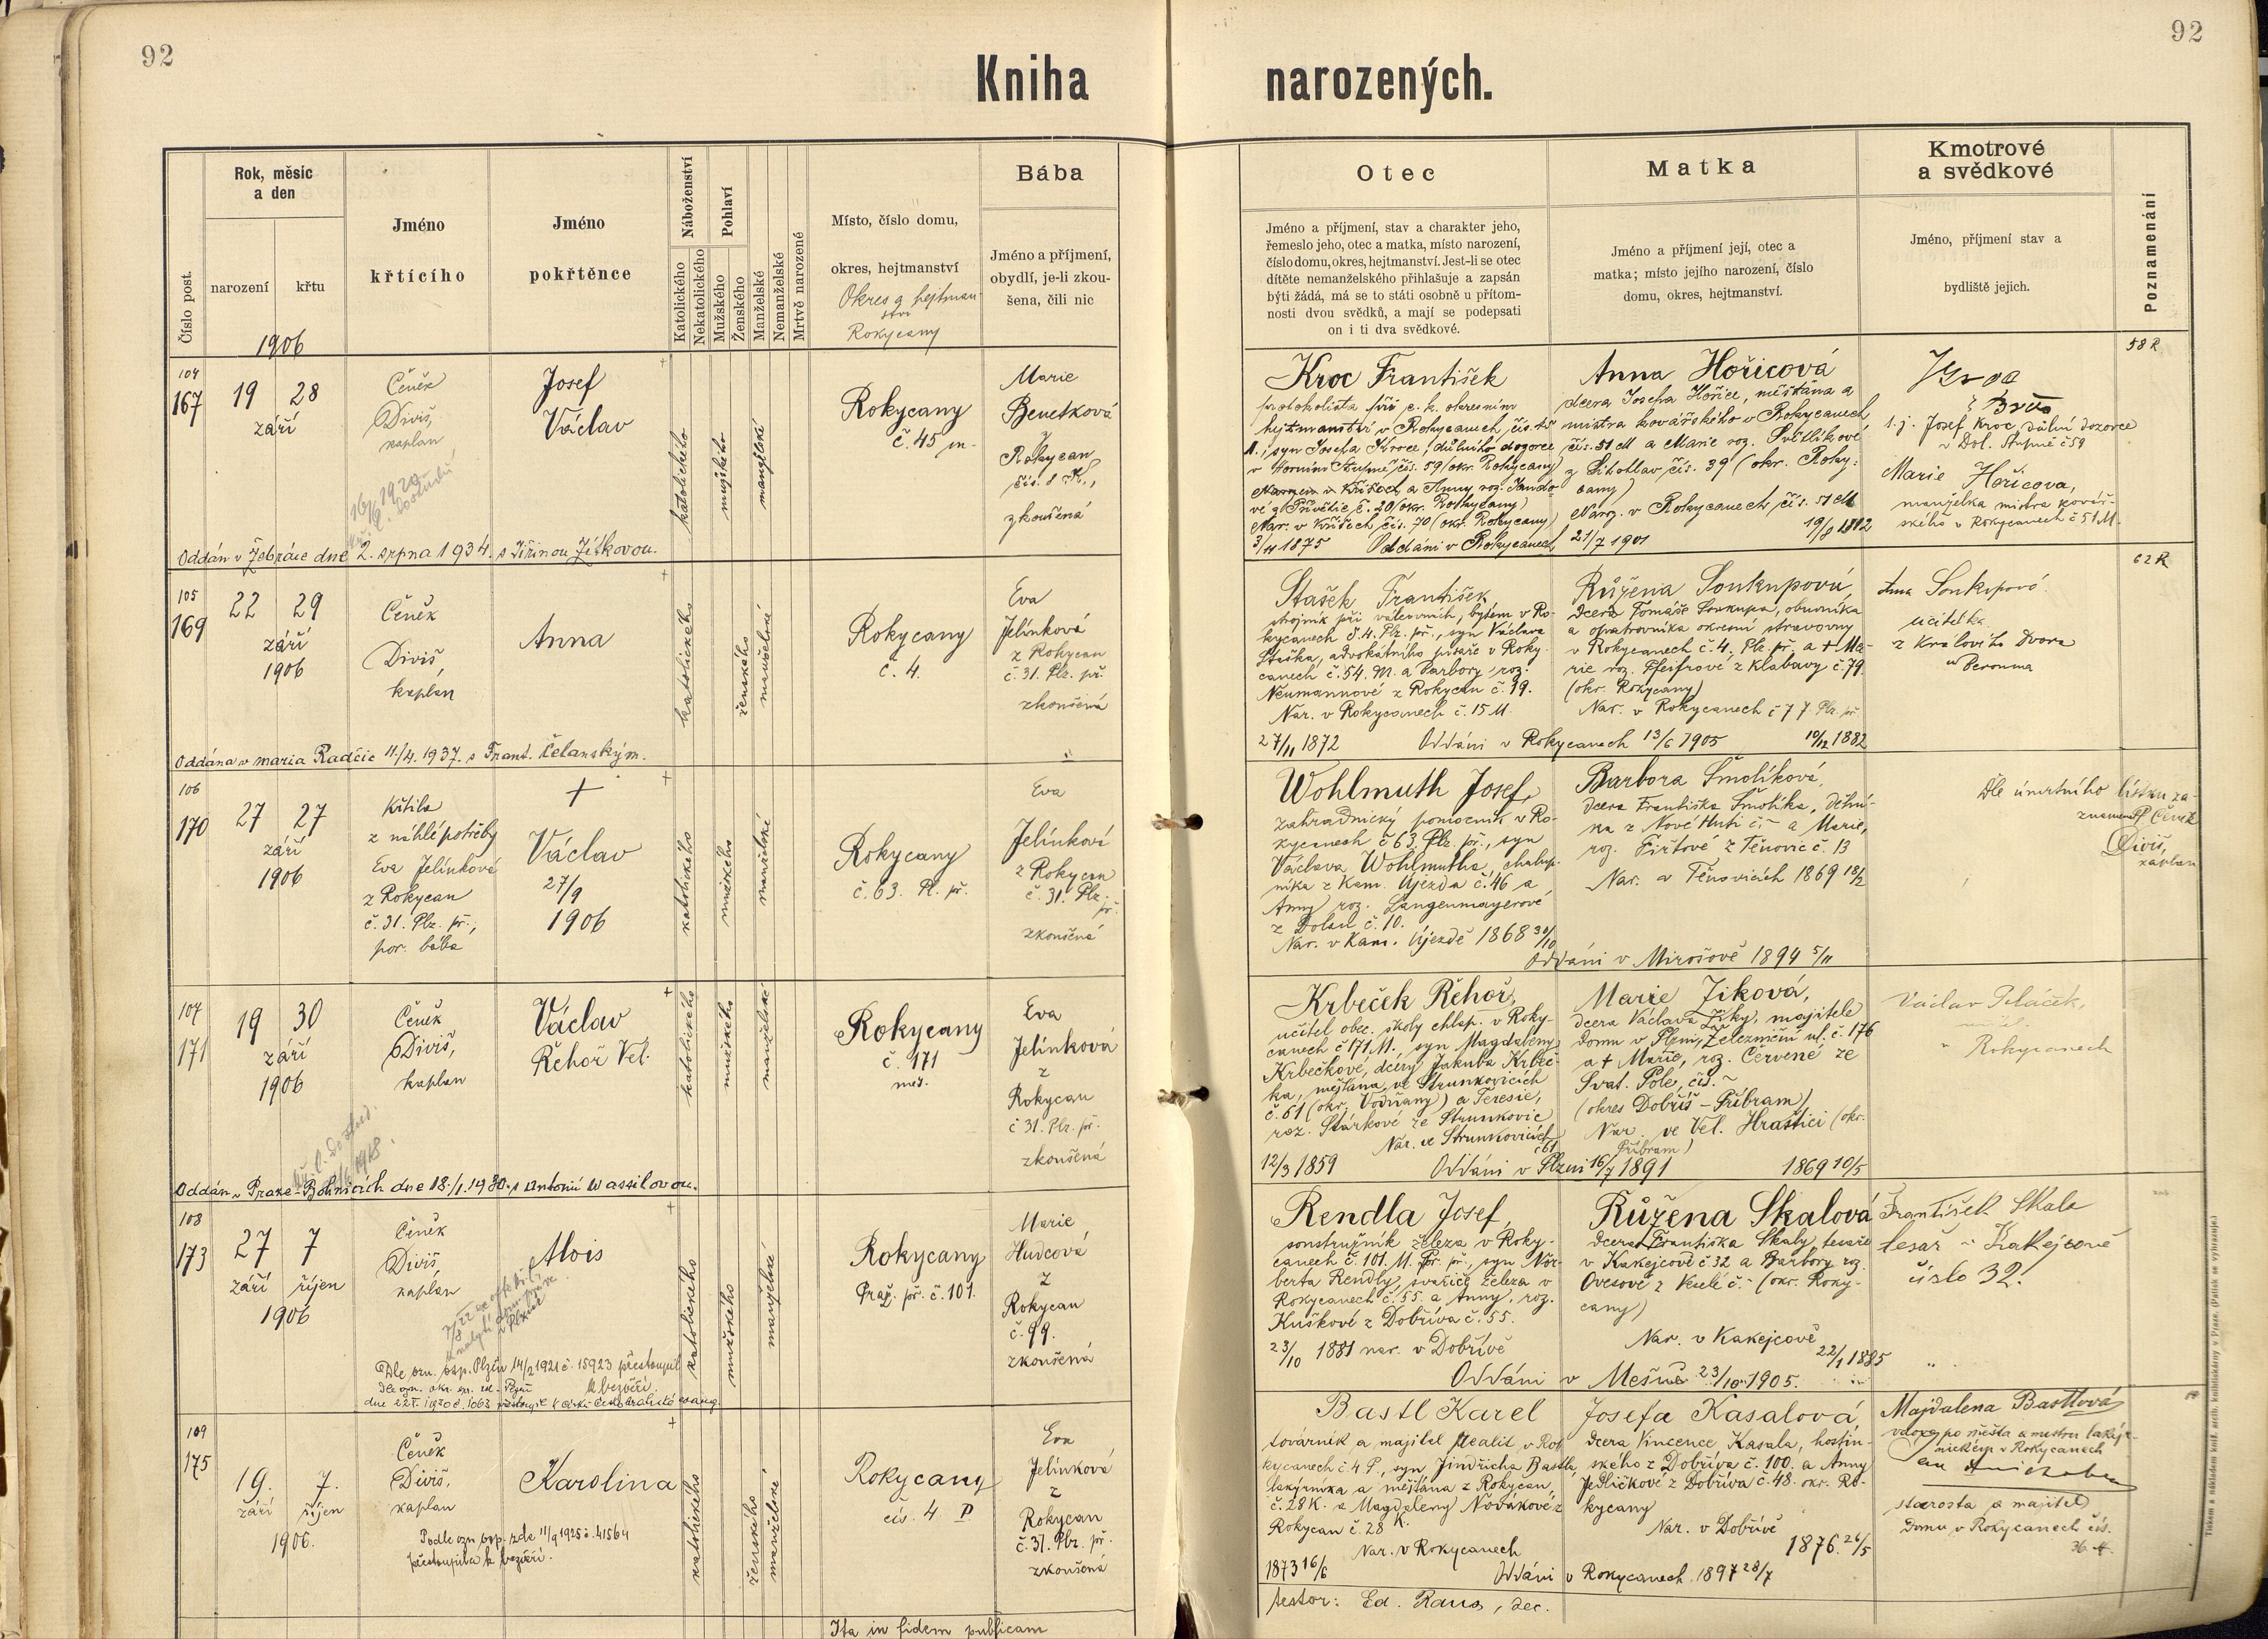 92
92
Kniha narozených.
Číslo post.
Rok, měsíc
a den
narození
křtu
1906
Jméno
křtícího
Jméno
pokřtěnce
Náboženství
Katolického
Nekatolického
Pohlaví
Mužského
Ženského
Manželské
Nemanželské
Mrtvě narozené
Místo, číslo domu,
okres, hejtmanství
Okres a hejtman-
ství
Rokycany
Bába
Jméno a příjmení,
obydlí, je-li zkou-
šena, čili nic
Otec
Jméno a příjmení, stav a charakter jeho,
řemeslo jeho, otec a matka, místo narození,
číslo domu, okres, hejtmanství. Jest-li se otec
dítěte nemanželského přihlašuje a zapsán
býti žádá, má se to státi osobně u přítom-
nosti dvou svědků, a mají se podepsati
on i ti dva svědkové.
Matka
Jméno a příjmení její, otec a
matka; místo jejího narození, číslo
domu, okres, hejtmanství.
Kmotrové
a svědkové
Jméno, příjmení stav a
bydliště jejich.
Poznamenání
104
167
19 28
září
Čeněk
Diviš,
kaplan
Josef
Václav
katolického
mužského
manželské
Rokycany
č. 45 m.
Marie
Benetková
z
Rokycan
čís. 8 R.,
zkoušená
Oddán v Žebráce dne 2. srpna 1934. s Jiřinou Jíškovou.
Kroc František
protokolista při c. k. okresním
hejtmanství v Rokycanech čís. 45
M., syn Josefa Kroce, důlního dozorce
čís. 59 (okr. Rokycany)
č. 20 (okr. Rokycany)
Nar. v Křiších čís. 70 (okr. Rokycany)
3/4 1875 Oddáni v Rokycanech 21/7 1901
Anna Hořicová
dcera Josefa Hořice, měšťana a
mistra kovářského v Rokycanech
čís. 51 M a Marie roz. Světlíkové
čís. 39 (okr. Roky-
cany)
Naroz. v Rokycanech čís. 51 M
58 R
t. j. Josef Kroc, důlní dozorce
č 59
Marie Hořicova,
manželka mistra kovář-
ského v Rokycanech č 51 M.
105
169
22 29
září
1906
Čeněk
Diviš,
kaplan
Anna
katolického
ženského
manželské
Rokycany
č. 4.
Eva
Jelínková
z Rokycan
č. 31. Plz. př.
zkoušená
Oddána v Maria Radčic 11./4. 1937. s Frant. Čelanským.
Stašek František
strojník při válcovnách, bytem v Ro-
kycanech č. 4. Plz. př., syn Václava
Staška, advokátního písaře v Roky-
canech č. 54. M. a Barbory, roz.
Neumannové z Rokycan č. 19.
Nar. v Rokycanech č. 15 M.
27/11 1872 Oddáni v Rokycanech 13/6 1905
Růžena Soukupová,
dcera Tomáše Soukupa, obuvníka
a opatrovníka okresní stravovny
v Rokycanech č. 4. Plz. př. a + Ma-
rie roz. Pfeifrové z Klabavy č. 79.
(okr. Rokycany)
Nar. v Rokycanech č 77 Plz. př.
10/12 1882
62 R
Anna Soukupová
učitelka
z Králového Dvora
u Berouna
106
170
27 27
září
1906
Křtila
z náhlé potřeby
Eva Jelínková
z Rokycan
č. 31. Plz. př.,
por. bába
+
Václav
27/9
1906
katolického
mužského
manželské
Rokycany
č. 63. Pl. př.
Eva
Jelínková
z Rokycan
č. 31. Plz.
př.
zkoušená
Wohlmuth Josef,
zahradnický pomocník v Ro-
kycanech č 63. Plz. př., syn
Václava Wohlmutha, chalup-
níka z Kam. Újezda č. 46 a
Anny roz. Langenmayerové
z Dolan č. 10.
Nar. v Kam. Újezdě 1868 30/10
Oddáni v Mirošově 1894 5/11
Barbora Šmolíková,
dcera Františka Šmolíka, dělní-
ka z Nové Huti č. – a Marie,
roz. Firtové z Těnovic č. 13
Nar. v Těnovicích 1869 18/2
Dle úmrtního lístku za-
znamenal P. Čeněk
Diviš,
kaplan
107
171
19 30
září
1906
Čeněk
Diviš,
kaplan
Václav
Řehoř Vel.
katolického
mužského
manželské
Rokycany
č. 171
měs.
Eva
Jelínková
z
Rokycan
č 31. Plz. př.
zkoušená
Oddán v Praze-Bohnicích dne 18./1. 1930. s Antonií Wassilovou.
Krbeček Řehoř,
učitel obec. školy chlap. v Roky-
canech č 171 M., syn Magdaleny
Krbečkové, dcery Jakuba Krbeč-
ka, měšťana ve Strunkovicích
č. 61 (okr. Vodňany) a Terezie,
roz. Stárkové ze Strunkovic
Nar. ve Strunkovicích
č 61
12/3 1859 Oddáni v Plzni 16/7 1891
Marie Žiková,
dcera Václava Žiky, majitele
domu v Plzni, Železniční ul. č. 176
a + Marie, roz. Červené ze
Svat. Pole, čís. ~
(okres Dobříš – Příbram)
Nar. ve Vel. Hraštici (okr.
Příbram)
1869 10/5
Rokycanech
108
173
27 7
září říjen
1906
Čeněk
Diviš,
kaplan
Alois
Dle ozn. osp. Plzeň 14/2 1921 č. 15923 přestoupil
k bezvěří.
katolického
mužského
manželské
Rokycany
Praž. př. č. 101.
Marie
Hudcová
z
Rokycan
č. 99.
zkoušená
Rendla Josef,
soustružník železa v Roky-
canech č. 101. M. Pr. př., syn Nor-
berta Rendly, svářiče železa v
Rokycanech č. 55. a Anny, roz.
Kuškové z Dobříva č. 55.
23/10 1881 nar. v Dobřívě
Oddáni v Mešně 23/10 1905.
Růžena Skalová
dcera Františka Skaly, tesaře
v Kakejcově č 32 a Barbory roz.
Ovesové z Veselé č. – (okr. Roky-
cany)
Nar. v Kakejcově
22/1 1885
František Skala
tesař v Kakejcově
číslo 32.
109
175
19. 7.
září říjen
1906.
Čeněk
Diviš,
kaplan
Karolina
Podle ozn. osp. zde 11/9 1925 č. 41564
přestoupila k bezvěří.
katolického
ženského
manželské
Rokycany
čís. 4 P
Eva
Jelínková
z
Rokycan
č. 31. Plz. př.
zkoušená
Bastl Karel
továrník a majitel realit v Ro-
kycanech č 4 P., syn Jindřicha Bastla,
lakýrníka a měšťana z Rokycan
č. 28 K. a Magdaleny Novákové z
Rokycan č. 28 K.
Nar. v Rokycanech
1873 16/6 Oddáni v Rokycanech 1897 28/7
Josefa Kasalová,
dcera Vincence Kasala, hostin-
ského z Dobříva č. 100. a Anny
Jedličkové z Dobříva č. 48. okr. Ro-
kycany
Nar. v Dobřívě
1876. 26/5
Majdalena Bastlová
v Rokycanech
starosta a majitel
domu v Rokycanech čís.
testor: Ed. Raus, dec.
Ita in fidem publicam